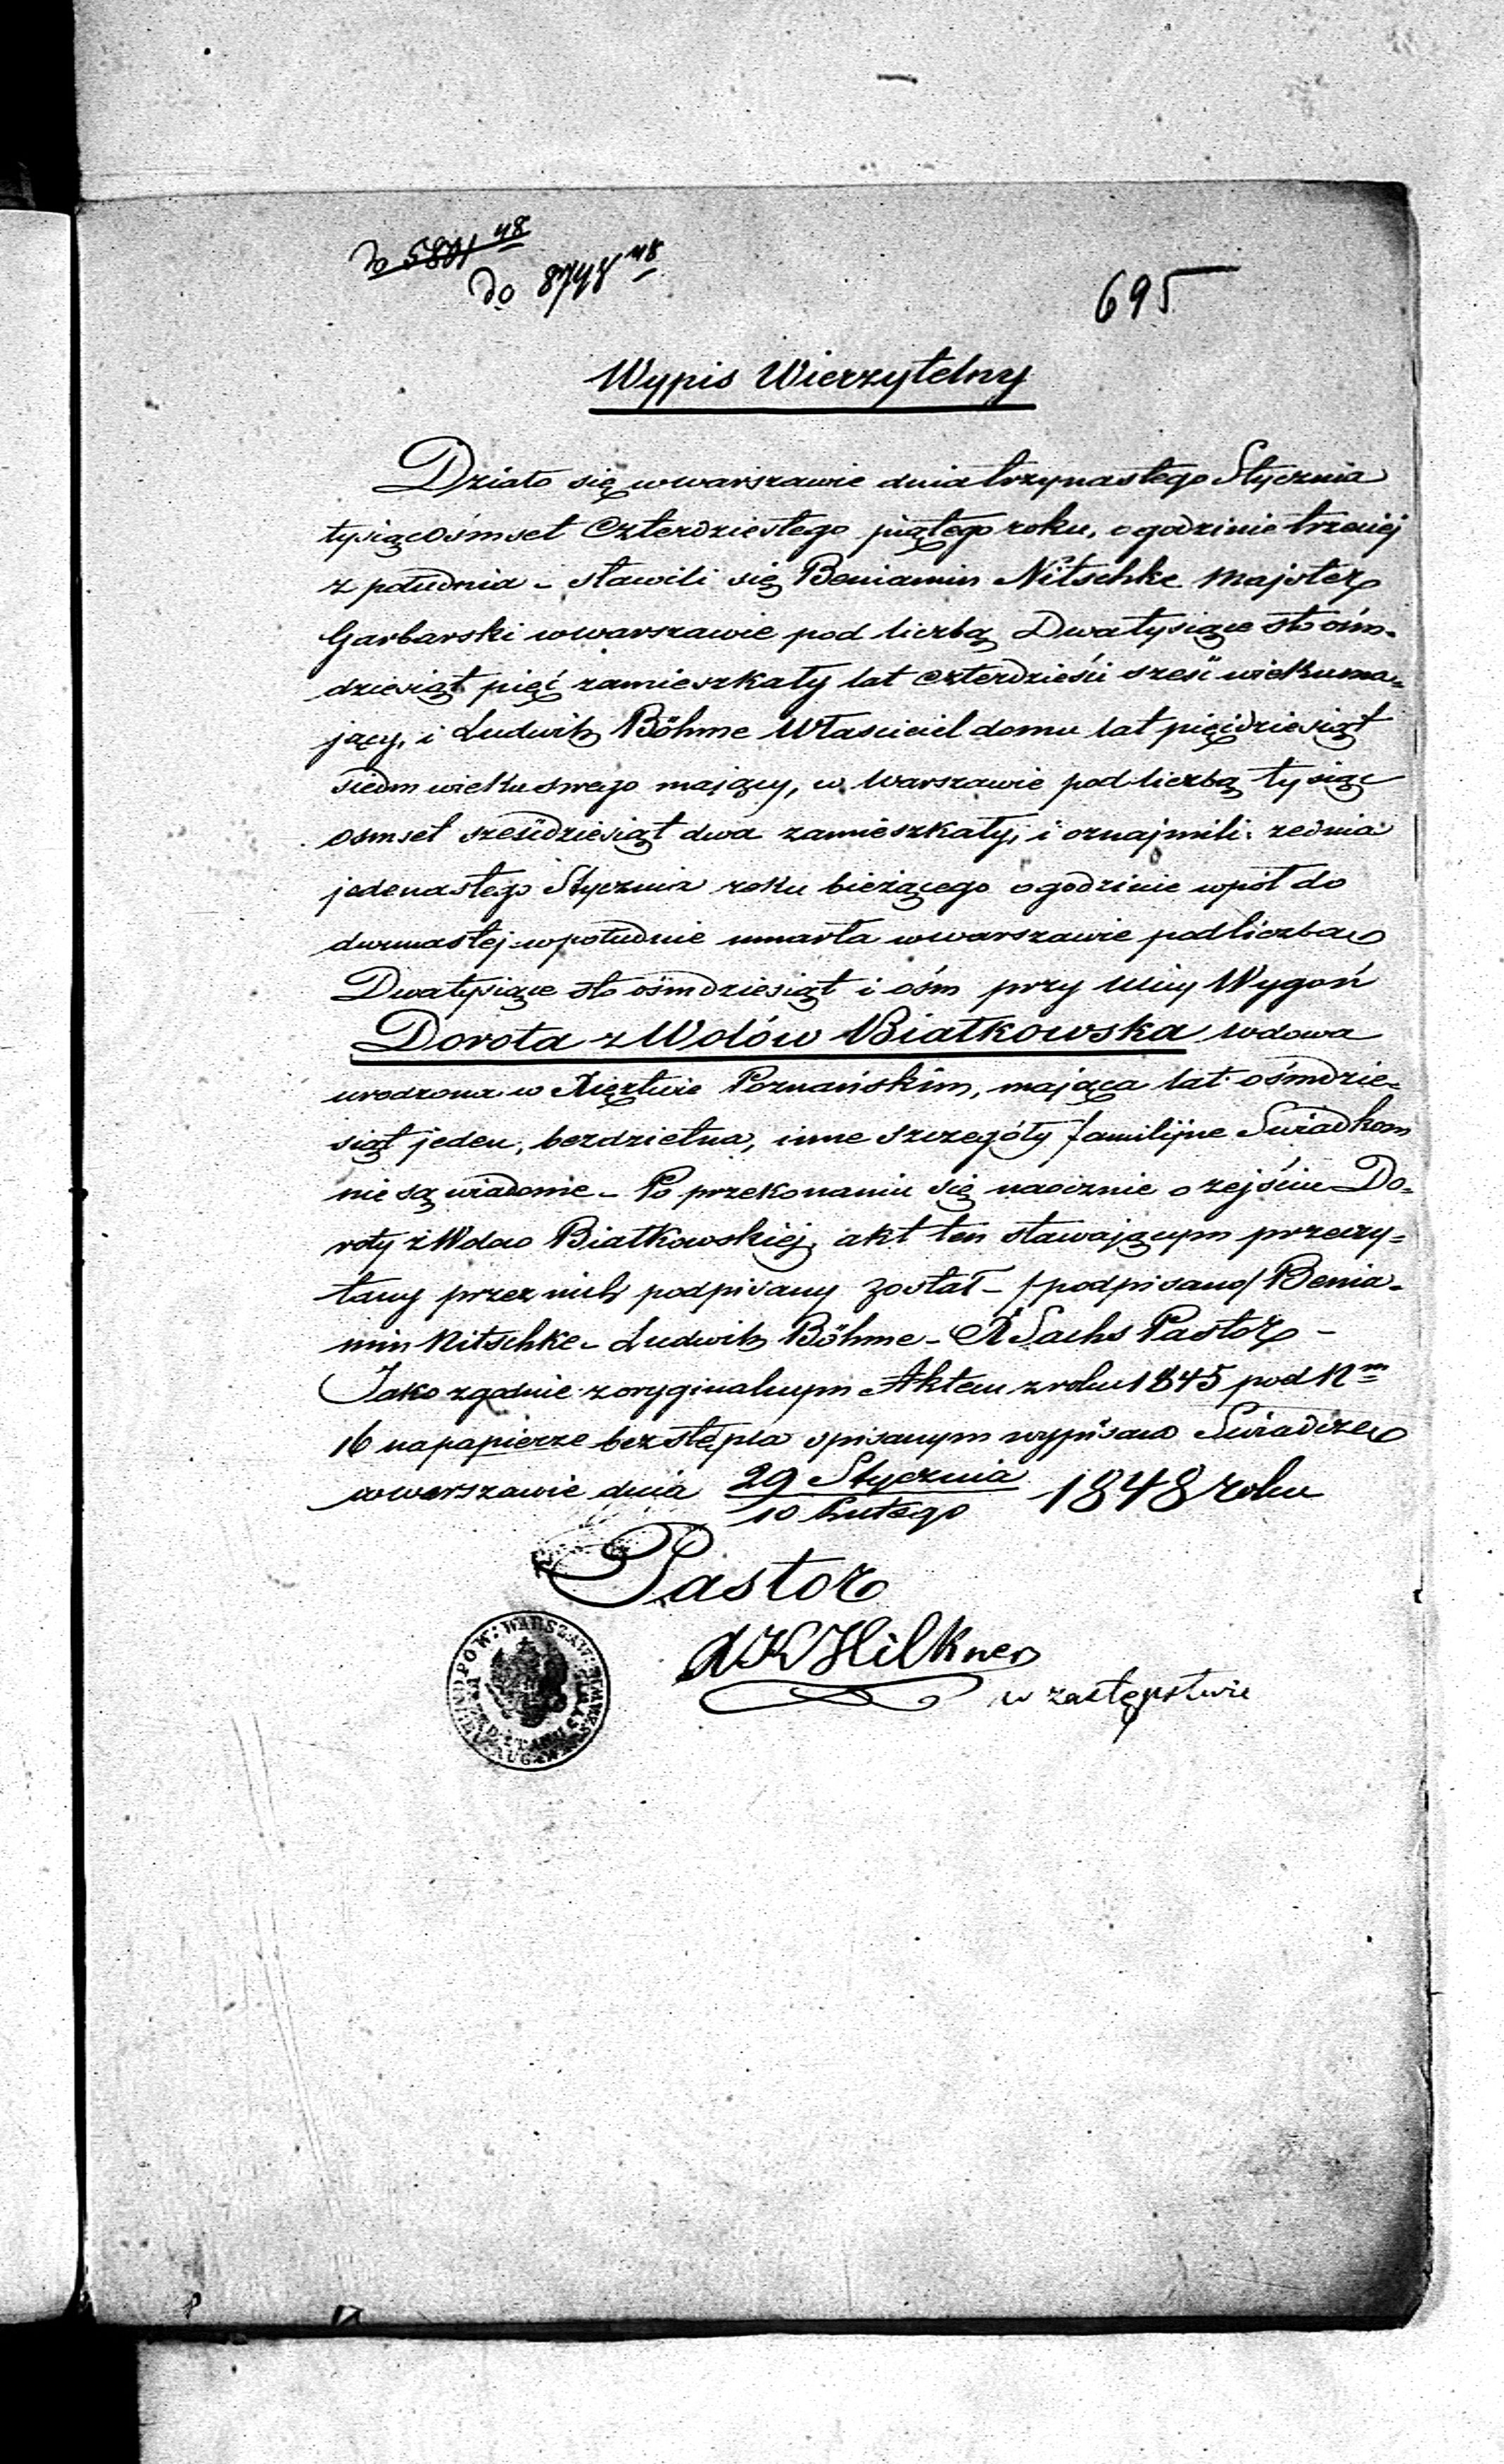 do 5801 48
do 8748 48
695
Wypis Wierzytelny
Działo się w warszawie dnia trzynastego Stycznia
tysiąc ośmset Czterdziestego piątego roku, o godzinie trzeciej
z południa – stawili się Beniamin Nitschke Majster
Garbarski w warszawie pod liczbą Dwatysiące sto óśm-
dziesiąt pięć zamieszkały lat czterdzieści sześć wieku ma=
jący, i Ludwik Böhme Właściciel domu lat pięćdziesiąt
siedm wieku swego mający, w Warszawie pod liczbą tysiąc
osmset sześćdziesiąt dwa zamieszkały, i oznajmili: że dnia
jedenastego Stycznia roku bieżącego o godzinie wpół do
dwunastej w południe umarła w warszawie pod liczbą
Dwatysiące sto óśmdziesiąt i ośm przy Ulicy Wygoń
Dorota z Wolów Białkowska wdowa
urodzona w Xięztwie Poznańskim, mająca lat ośmdzie=
siąt jeden, bezdzietna, inne szczegóły familijne Świadkom
nie są wiadome – Po przekonaniu się naocznie o zejściu Do=
roty z Wolów Białkowskiej, akt ten stawającym przeczy=
tany przez nich podpisany został – /podpisano/ Benia=
min Nitschke – Ludwik Böhme – Sachs Pastor –
Jako zgodnie z oryginalnym Aktem z roku 1845 pod Nm
16 na papierze bez stępla spisanym wypisano Świadczę
w warszawie dnia 29 Stycznia / 10 Lutego 1848 roku
Pastor
w zastępstwie